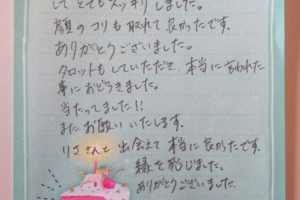 して とてもスッキリしました。
顔のコリも取れて良かったです。
ありがとうございました。
タロットもしていただき、本当に言われた
事におどろきました。
当たってました!!
またお願いいたします。
りささんと出会えて本当に良かったです。
縁を感じました。
ありがとうございました。